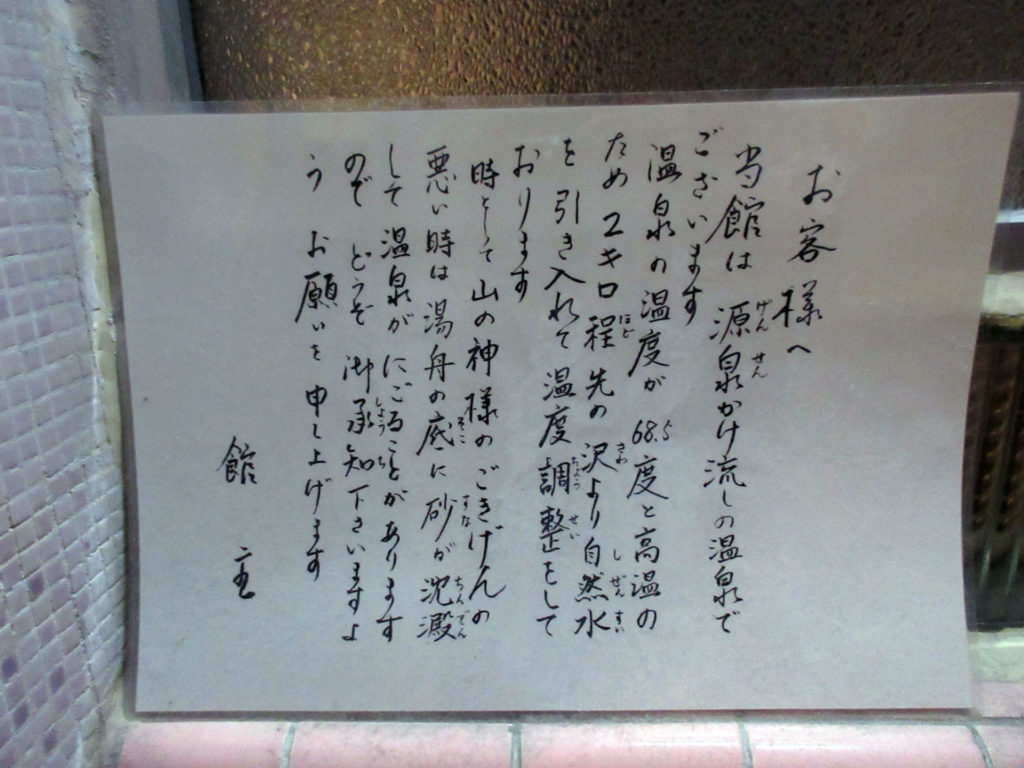 お客様へ
当館は 源泉かけ流しの温泉で
ございます
温泉の温度が 68.5度と高温の
ため 2キロ程先の沢より自然水
を 引き入れて温度調整をして
おります
時として山の神様のごきげんの
悪い時は湯舟の底に砂が沈澱
して 温泉が にごることがあります
ので どうぞ 御承知下さいますよ
う お願いを 申し上げます
館 主